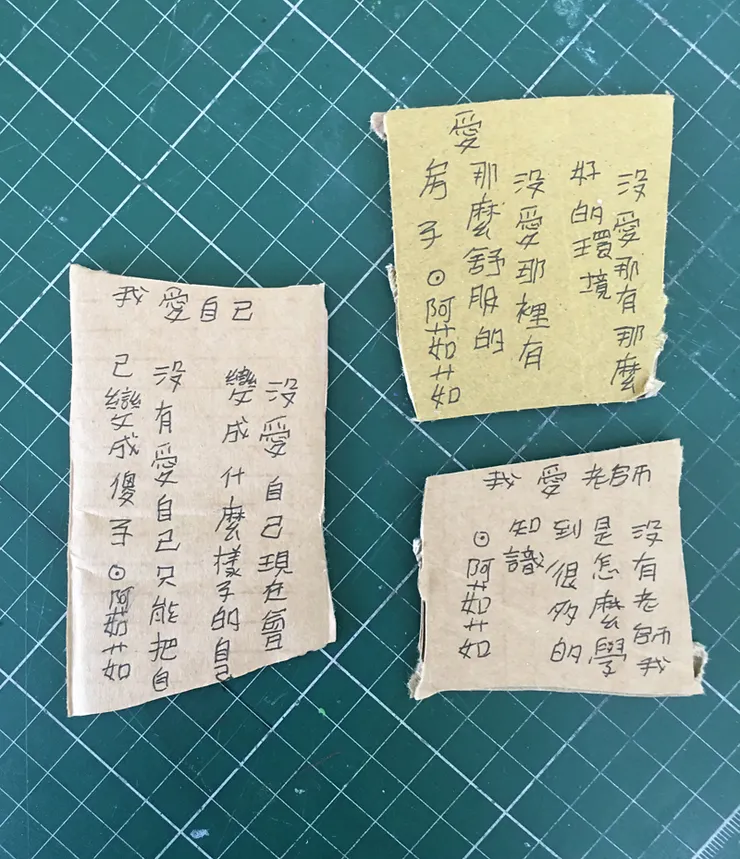 我愛自己
沒愛自己現在會
變成什麼樣子的自己
沒有愛自己只能把自
己變成傻子⊙阿茹茹
愛
沒愛那有那麼
好的環境
沒愛那裡有
那麼舒服的
房子⊙阿茹茹
我愛老師
沒有老師我
是怎麼學
到很多的
知識
⊙阿茹茹